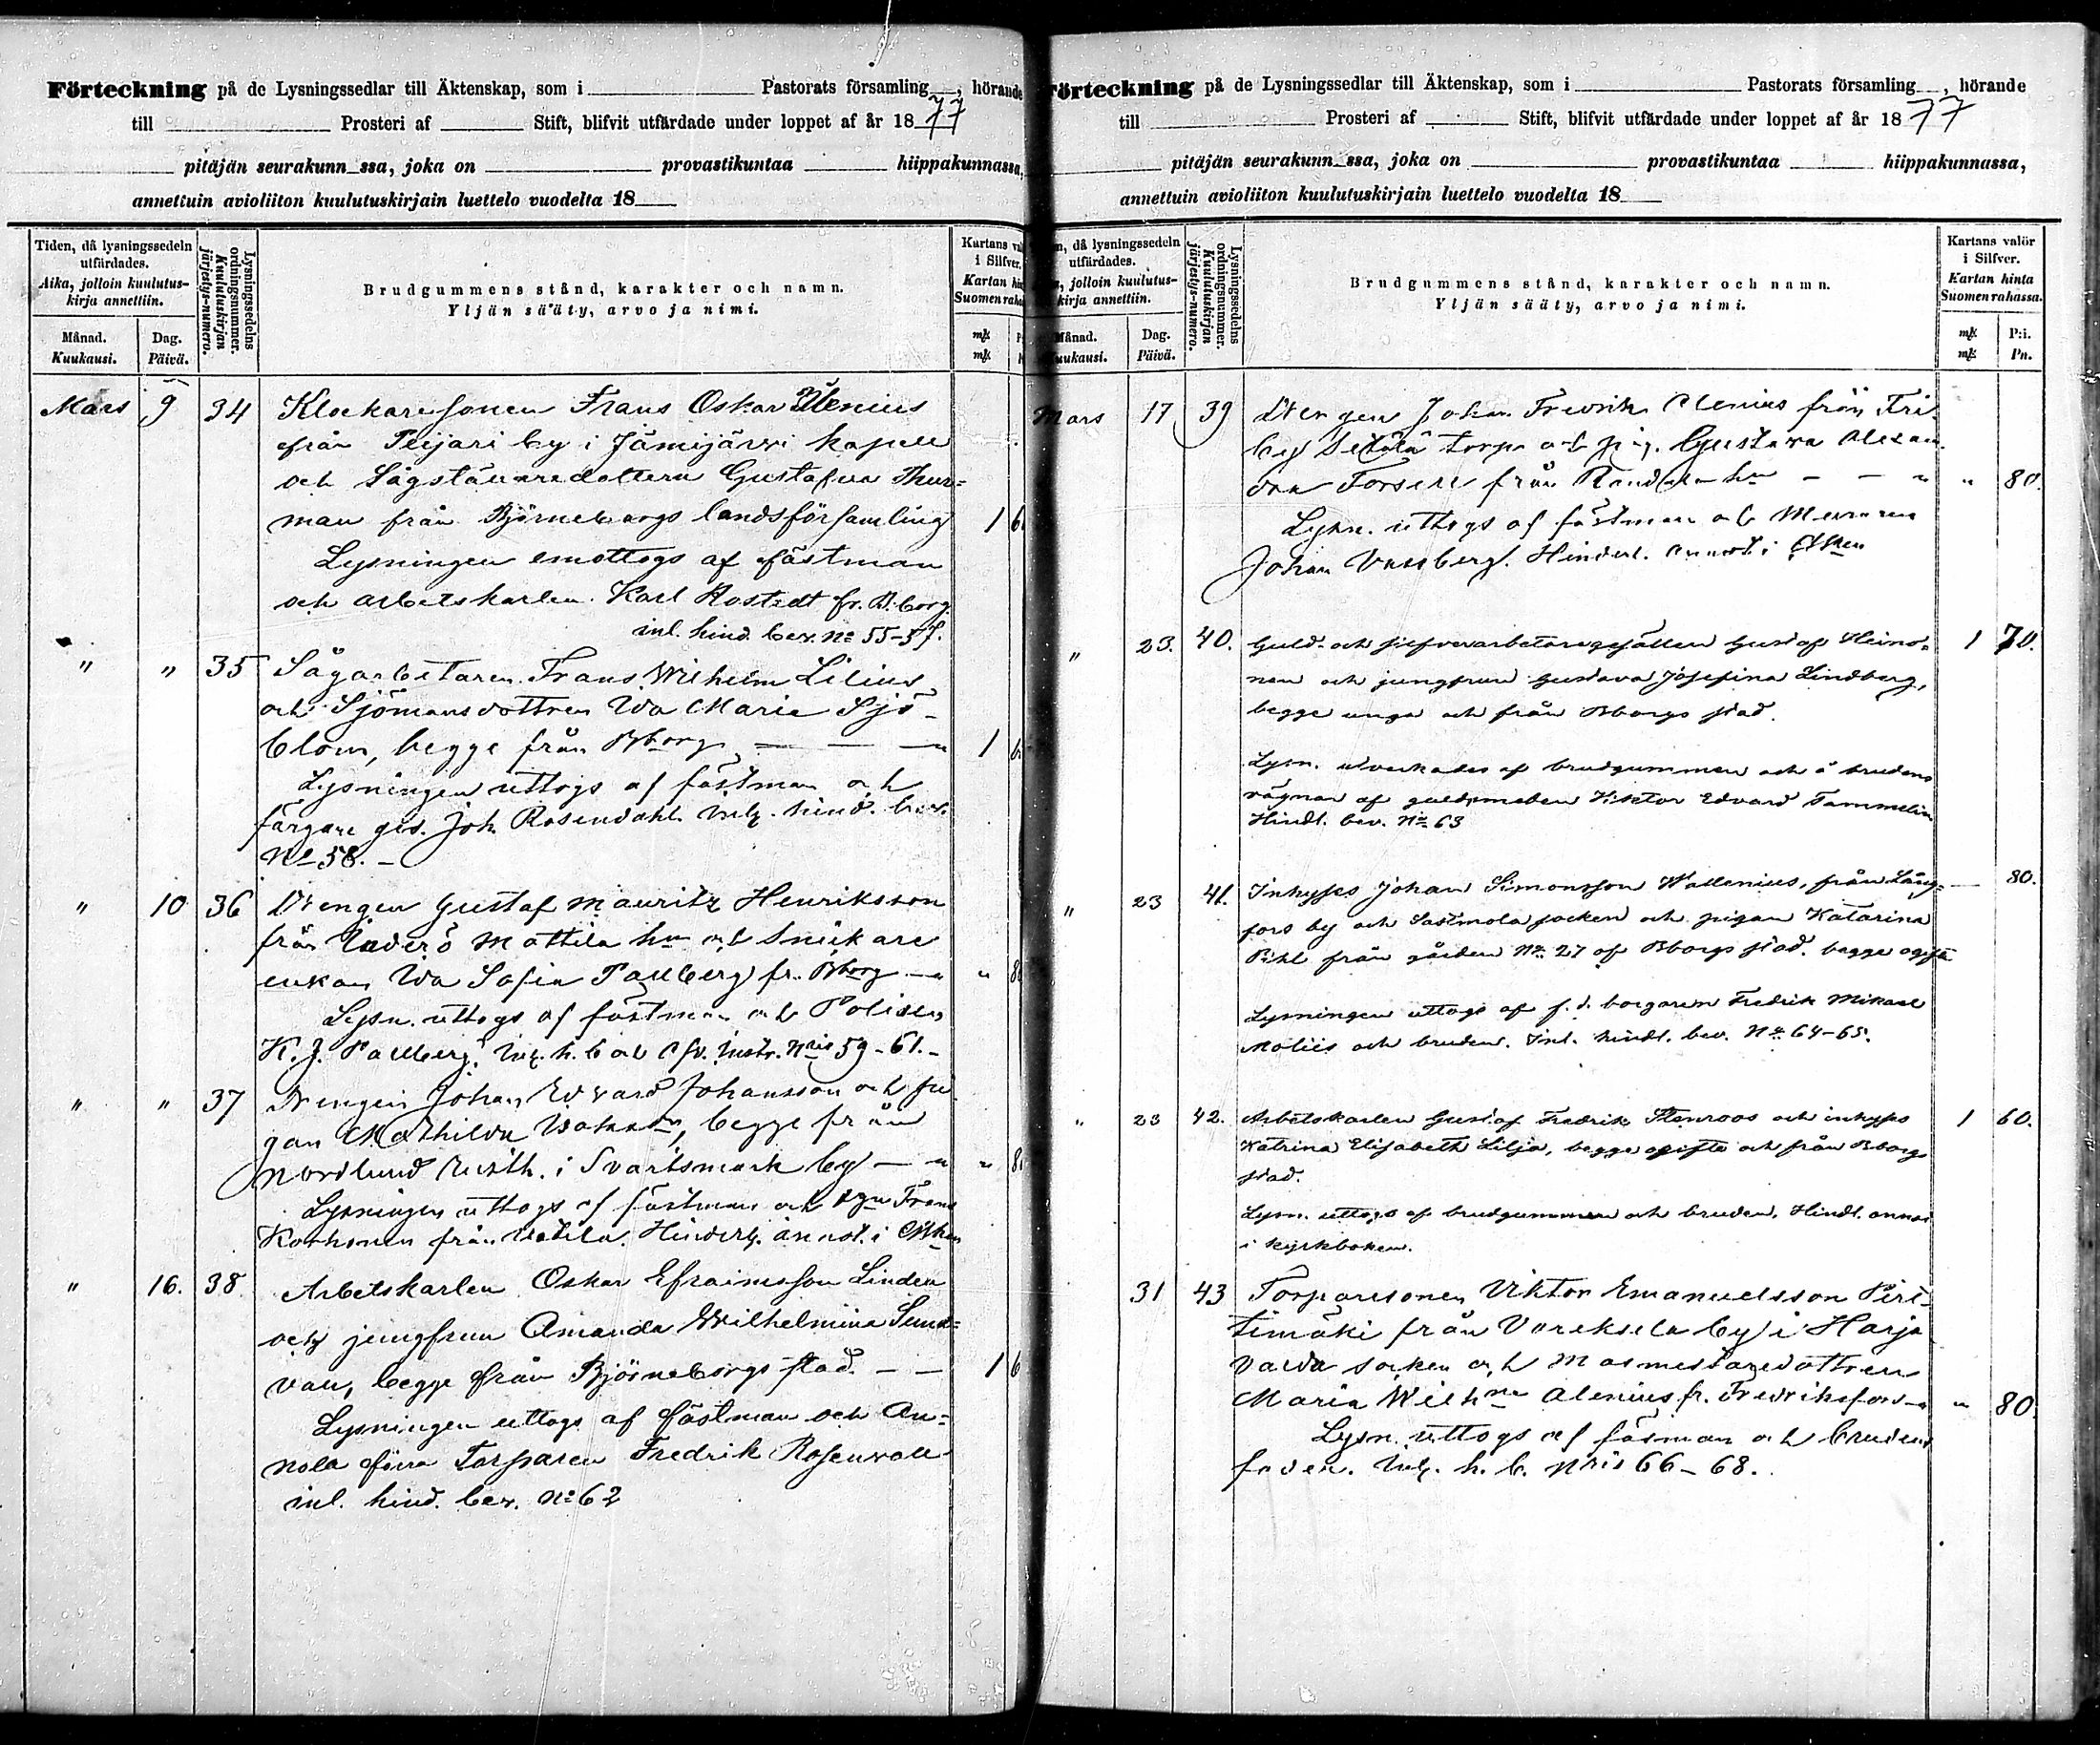 Förteckning på de Lysningssedlar till Äktenskap, som i Pastorats församling, hörande
till Prosteri af Stift, blifvit utfärdade under loppet af år 1877
pitäjän seurakunn ssa, joka on provastikuntaa hiippakunnassa,
annettuin avioliiton kuulutuskirjain luettelo vuodelta 18
Tiden, då lysningssedeln utfärdades.
Aika, jolloin kuulutus-kirja annettiin.
Månad. Kuukausi.
Dag. Päivä.
Lysningssedelns ordningsnummer.
Kuulutuskirjan järjestys-numero.
Brudgummens stånd, karakter och namn.
Yljän sääty, arvo ja nimi.
Kartans val
i Silfver.
Kartan hin
Suomen raha
mk
mk
Mars 9 34 Klockaresonen Frans Oskar
från Peijari by i Jämijärvi kapell
och Sågställaredottern Gustafva Thur=
man från Björneborgs landsförsamling 1 6
Lysningen emottogs af fästman
och arbetskarlen Karl Rostedt fr. B.borg.
inl. hind. bev. No 55-57.
" " 35 Sågarbetaren Frans Wilhelm Lilius
och Sjömansdottren Ida Maria Sjö-
blom, begge från Bborg — — — 1 6
Lysningen uttogs af fästman och
färgare ges. Joh. Rosendahl. inl. hind. bev.
No 58. -
" 10 36 Drengen Gustaf Mauritz Henriksson
från Inderö Mattila hn och Snickare
enkan Ida Sofia Pallberg fr. Bborg — " 8
Lysn. uttogs af fästman och Polisen
K. J. Pallberg. inl. h. b. och Nris 59-61.-
" " 37 Drengen Johan Edvard Johansson och pi
gan Mathilda, begge från
Nordlund i Svartsmark by — " " 8
Lysningen uttogs af fästman och Frans
Korhonen från. Hinderl. annot. i
" 16. 38. Arbetskarlen Oskar Efraimsson Linden
och jungfrun Amanda Wilhelmina Sund=
vall, begge från Björneborgs stad. — — 1 6
Lysningen uttogs af fästman och An=
nola förra Torparen Fredrik Rosenvall
inl. hind. bev. No 62
Förteckning på de Lysningssedlar till Äktenskap, som i Pastorats församling, hörande
till Prosteri af Stift, blifvit utfärdade under loppet af år 1877
pitäjän seurakunn ssa, joka on provastikuntaa hiippakunnassa,
annettuin avioliiton kuulutuskirjain luettelo vuodelta 18
n, då lysningssedeln utfärdades.
, jolloin kuulutus-kirja annettiin.
Månad. Kuukausi.
Dag. Päivä.
Lysningssedelns ordningsnummer.
Kuulutuskirjan järjestys-numero.
Brudgummens stånd, karakter och namn.
Yljän sääty, arvo ja nimi.
Kartans valör
i Silfver.
Kartan hinta
Suomen rahassa.
mk P:i.
mk Pn.
Mars 17 39 Drengen Johan Fredrik Alenius från Fri
by Setälä torp och pig. Gustava Alexan
dra Forsell från hn — — " " 80.
Lysn. uttogs af fästman och Muraren
Johan. Hinderl. annot. i
" 23. 40. Guld- och silfverarbetaregesällen Gustaf Heino- 1 70.
nen och jungfrun Gustava Josefina Lindberg,
begge unga och från Bborgs stad.
Lysn. utverkades af brudgummen och å brudens
vägnar af guldsmeden Viktor Edvard Tammelin
Hindl. bev. No 63
" 23 41. Inhyses Johan Simonsson Wallenius, från Lång= — 80.
fors by och Sastmola socken och pigan Katarina
Pihl från gården No 27 af Bborgs stad. begge ogifta
Lysningen uttogs af f. d. borgaren Fredrik Mikael
Moliis och bruden. Inl. hindl. bev. No 64-65.
" 23 42. Arbetskarlen Gustaf Fredrik Stenroos och inhyses 1 60.
Katrina Elisabeth Lilja, begge ogifta och från Bborgs
stad.
Lysn. uttogs af brudgummen och bruden. Hindl. annot
i kyrkboken.
31 43 Torparesonen Viktor Emanuelsson Piri-
timäki från Vareksela by i Harja
valda socken och Masmestaredottren
Maria Wilh:na Alenius fr. Fredriksfors " 80.
Lysn. uttogs af fäsman och brudens
fader. inl. h. b. Nris 66-68.